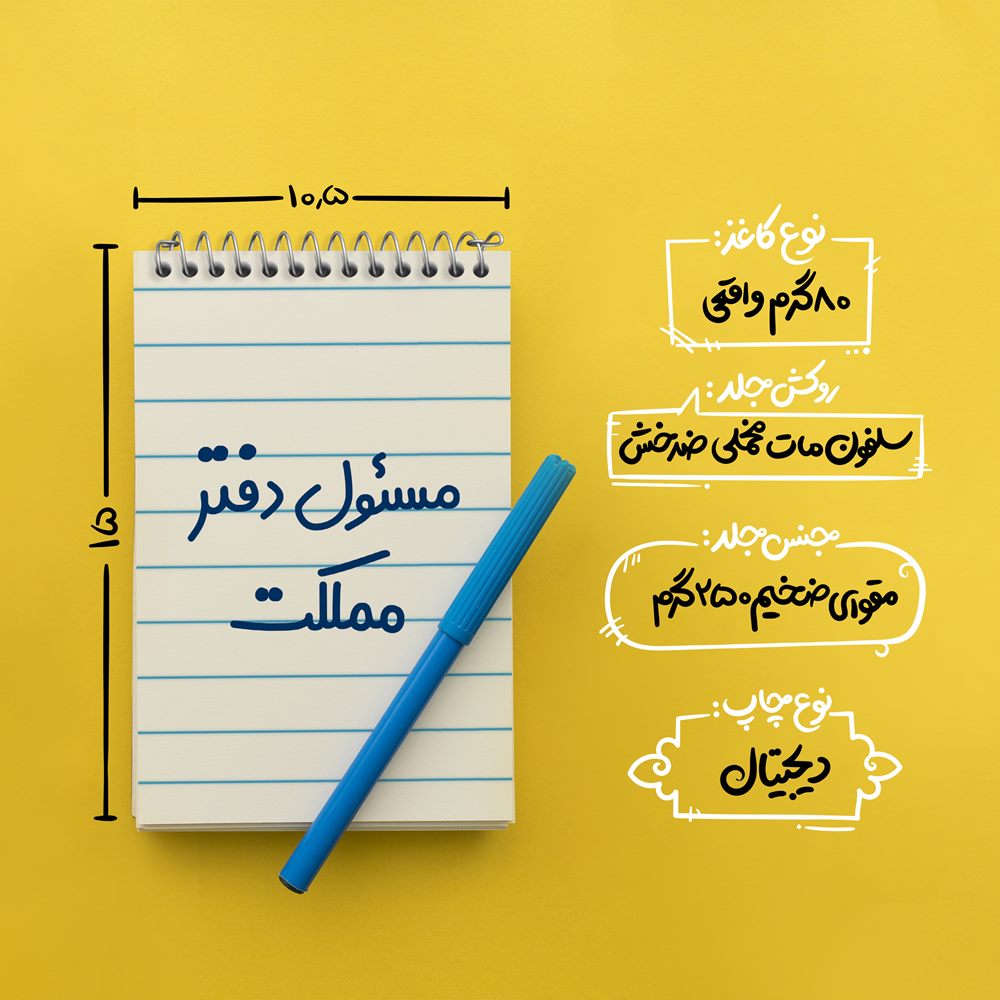 ۱۰٫۵
۱۵
مسئول دفتر
مملکت
نوع کاغذ:
۸۰گرم واقعی
روکش جلد:
سلفون مات مخملی ضدخش
جنس جلد:
مقوای ضخیم ۲۵۰گرم
نوع چاپ:
دیجیتال